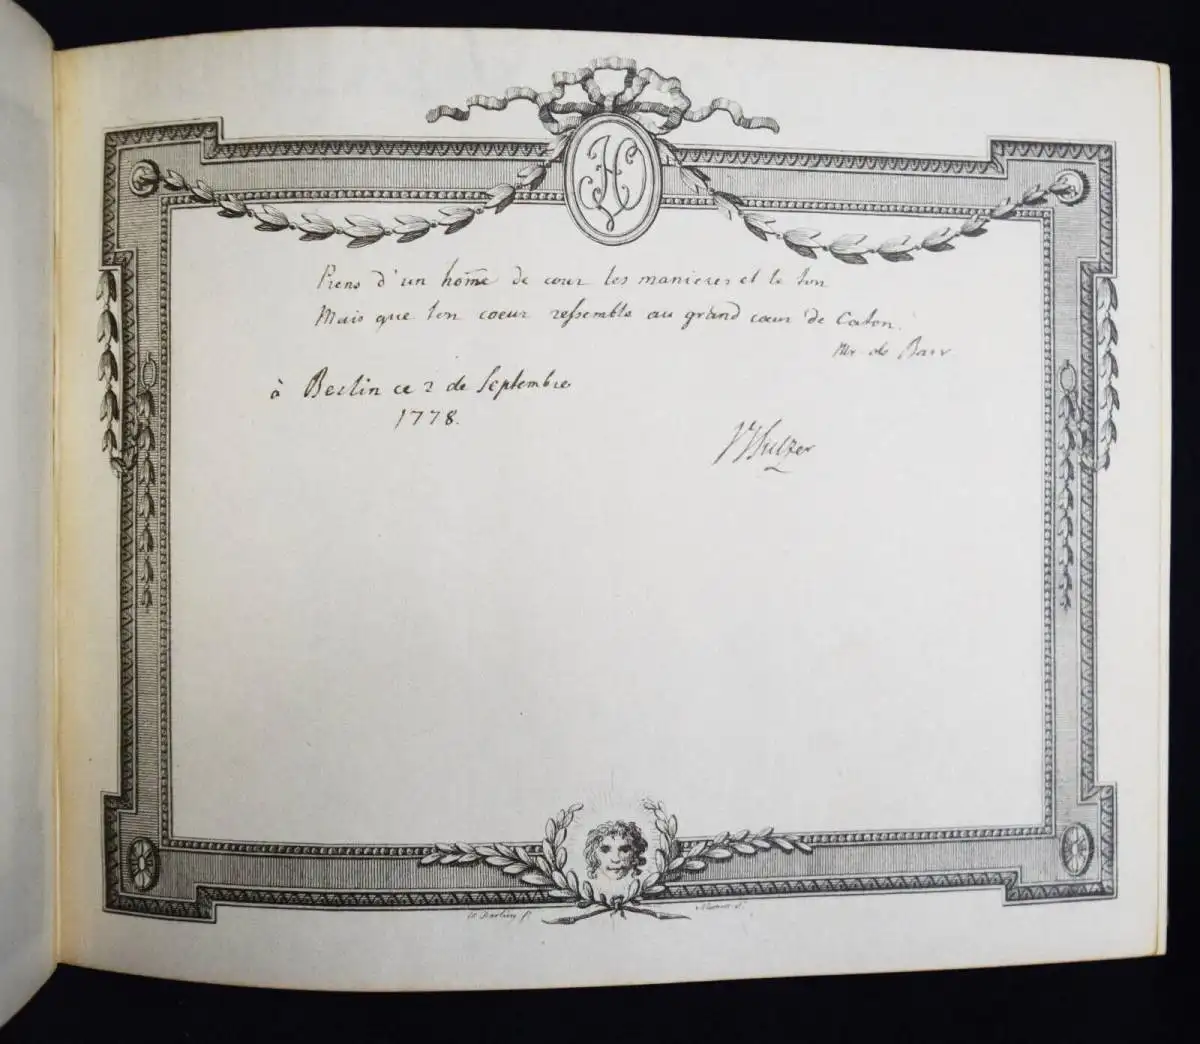 Prens d'un hom̄e de cour les manieres et le ton
Mais que ton coeur ressemble au grand cœur de Caton.
Mr. de Barr
à Berlin ce 2 de Septembre
1778.
JJSulzer
W. Darling f.